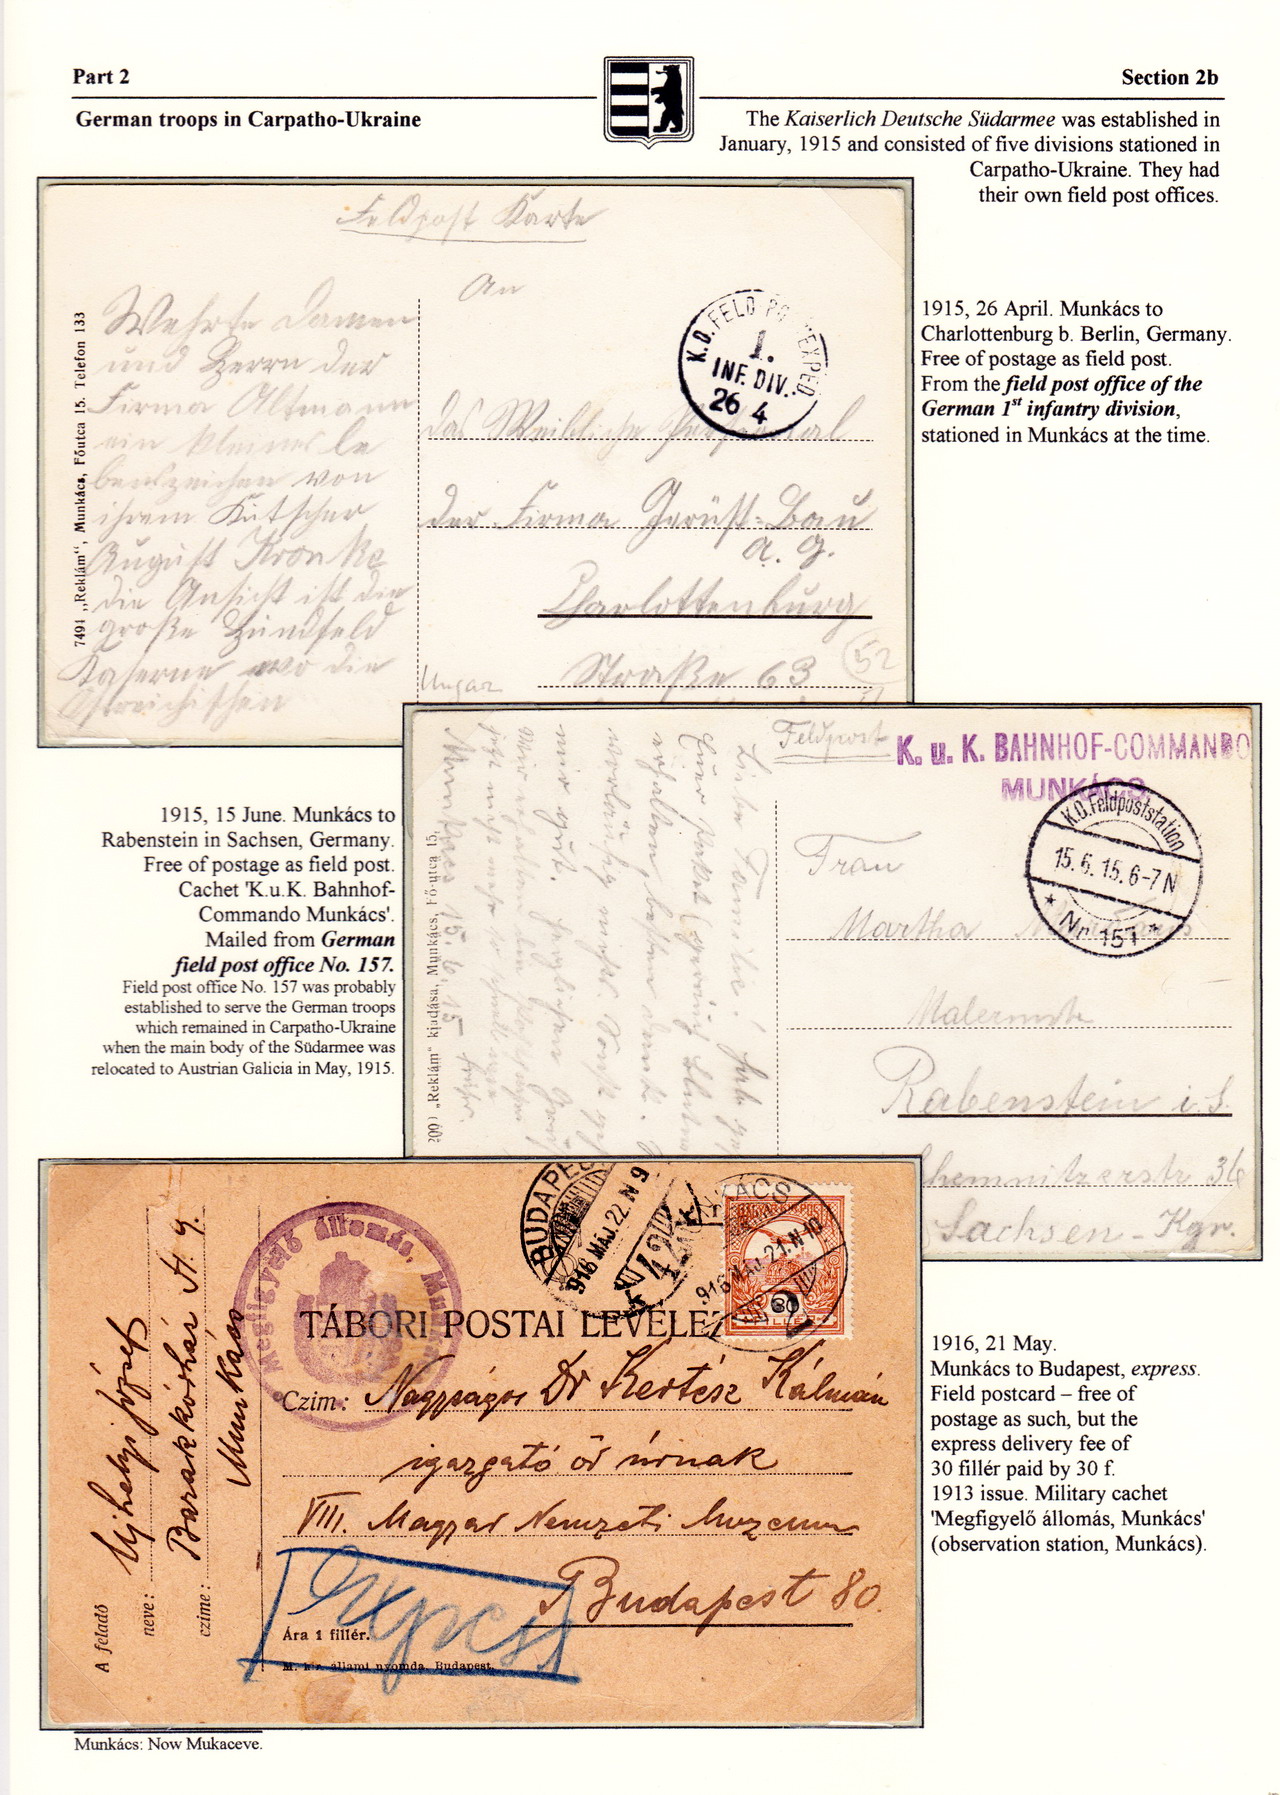 Part 2
Section 2b
German troops in Carpatho-Ukraine
The Kaiserlich Deutsche Südarmee was established in
January, 1915 and consisted of five divisions stationed in
Carpatho-Ukraine. They had
their own field post offices.
Feldpost Karte
An
Wehrte Damen
und Herrn der
Firma Altmann
ein kleines le
benszeichen von
ihrem Kutscher
August Kronke
die Ansicht ist die
große Hundfeld
Kaserne wo die
Östreichischen
7491 „Reklám“, Munkács, Főutca 15. Telefon 133
K.D. FELD POSTEXPED
1.
INF. DIV.
26 4
das Weibliche Personal
der Firma Gerüst-Bau
A. G.
Charlottenburg
Straße 63
Ungar
52
1915, 26 April. Munkács to
Charlottenburg b. Berlin, Germany.
Free of postage as field post.
From the field post office of the
German 1st infantry division,
stationed in Munkács at the time.
1915, 15 June. Munkács to
Rabenstein in Sachsen, Germany.
Free of postage as field post.
Cachet 'K.u.K. Bahnhof-
Commando Munkács'.
Mailed from German
field post office No. 157.
Field post office No. 157 was probably
established to serve the German troops
which remained in Carpatho-Ukraine
when the main body of the Südarmee was
relocated to Austrian Galicia in May, 1915.
Feldpost
K. u. K. BAHNHOF-COMMANDO
MUNKÁCS.
K.D. Feldpoststation
15. 6. 15. 6-7 N
* Nr. 157 *
„Reklám“ kiadása, Munkács, Fő-utca 15.
Munkács 15. 6. 15
Liebe Familie!
Frau
Martha
Rabenstein i. S.
Chemnitzerstr 36
Sachsen - Kgr.
A feladó
neve: Ujhelyi József
czime: Barakkórház
Munkács
Megfigyelő állomás, Munkács
BUDAPEST
916 MÁJ. 22. N 9
MUNKÁCS
916 MÁJ. 21. N 10
2
TÁBORI POSTAI LEVELEZ
Czim: Nagyságos Dr Kertész Kálmán
igazgató őr úrnak
VIII. Magyar Nemzeti Muzeum
Budapest 80.
Express
Ára 1 fillér.
M. kir. állami nyomda, Budapest.
1916, 21 May.
Munkács to Budapest, express.
Field postcard – free of
postage as such, but the
express delivery fee of
30 fillér paid by 30 f.
1913 issue. Military cachet
'Megfigyelő állomás, Munkács'
(observation station, Munkács).
Munkács: Now Mukaceve.